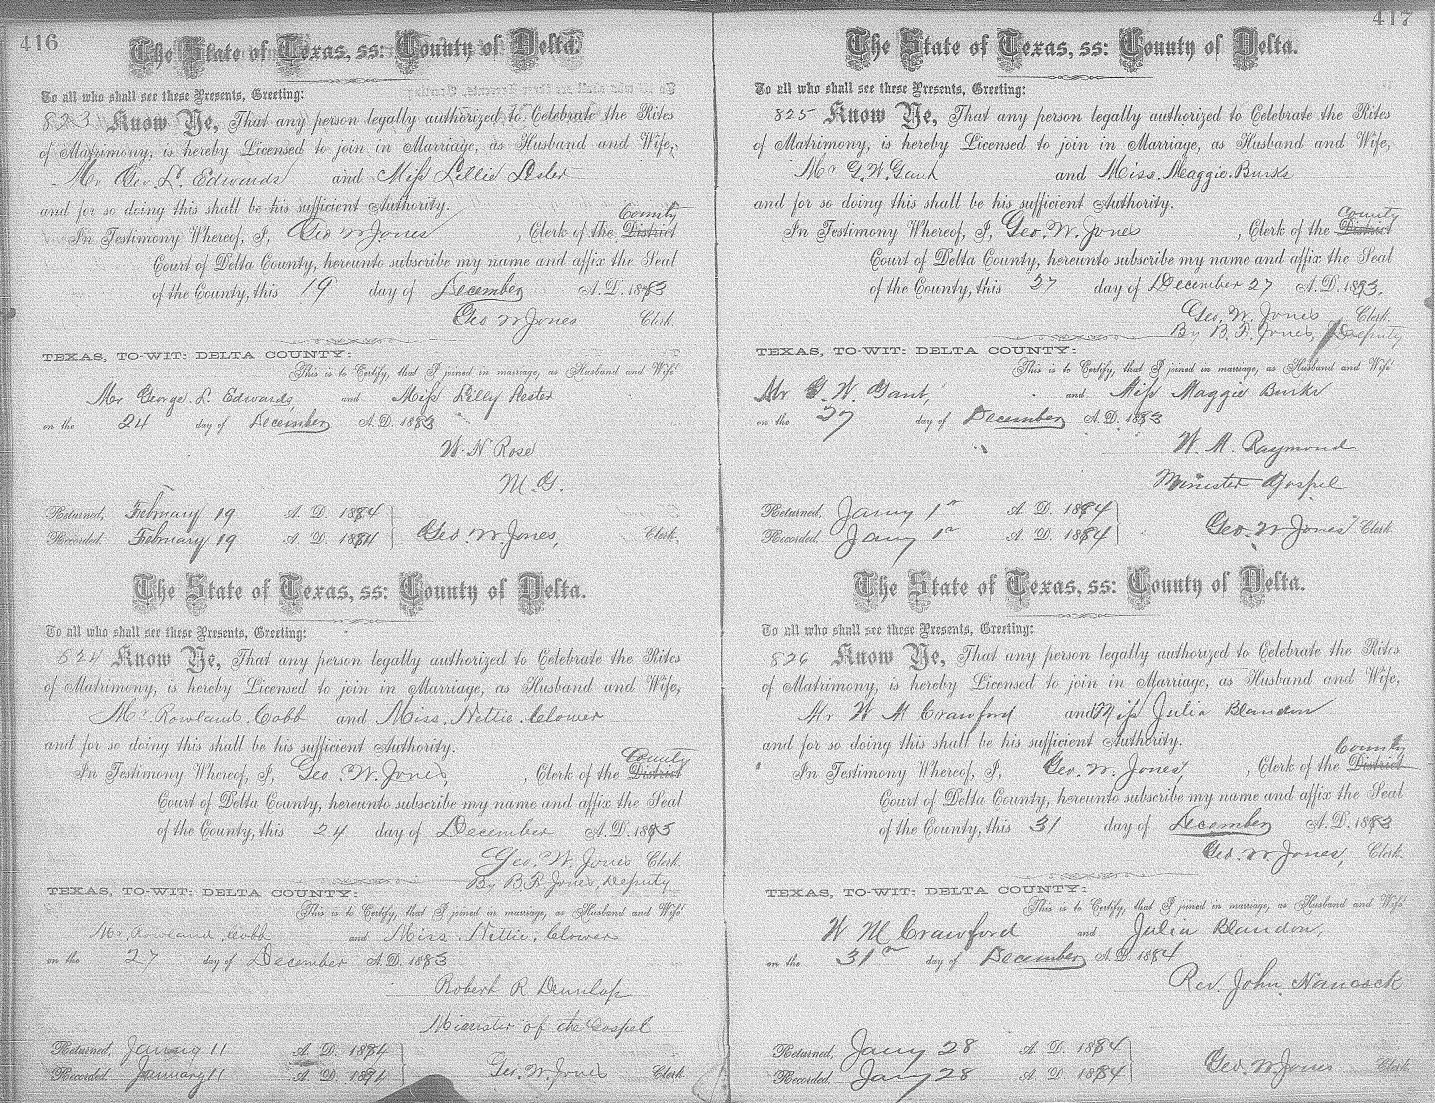 416
The State of Texas, ss: County of Delta.
To all who shall see these Presents, Greeting:
823 Know Ye, That any person legally authorized to Celebrate the Rites
of Matrimony, is hereby Licensed to join in Marriage, as Husband and Wife,
Mr Geo. L. Edwards and Miss Lillie Lester
and for so doing this shall be his sufficient Authority.
County
In Testimony Whereof, I, Geo W Jones, Clerk of the District
Court of Delta County, hereunto subscribe my name and affix the Seal
of the County, this 19 day of December A.D. 1883
Geo W Jones Clerk.
TEXAS, TO-WIT: DELTA COUNTY:
This is to Certify, that I joined in marriage, as Husband and Wife
Mr George L. Edwards, and Miss Lilly Hester
on the 24 day of December A.D. 1883
W. N Rose
M. G.
Returned, February 19 A. D. 1884
Recorded. February 19 A. D. 1884 Geo. W Jones, Clerk.
The State of Texas, ss: County of Delta.
To all who shall see these Presents, Greeting:
824 Know Ye, That any person legally authorized to Celebrate the Rites
of Matrimony, is hereby Licensed to join in Marriage, as Husband and Wife,
Mr. Rowland Cobb and Miss. Nettie Clower
and for so doing this shall be his sufficient Authority.
County
In Testimony Whereof, I, Geo. W. Jones, Clerk of the District
Court of Delta County, hereunto subscribe my name and affix the Seal
of the County, this 24 day of December A.D. 1883
Geo. W. Jones Clerk.
By B F Jones, Deputy
TEXAS, TO-WIT: DELTA COUNTY:
This is to Certify, that I joined in marriage, as Husband and Wife
Mr. Rowland Cobb and Miss. Nettie Clower
on the 27 day of December A.D. 1883
Robert R Dunlap
Minister of the Gospel
Returned, January 11 A. D. 1884
Recorded. January 11 A. D. 1884 Geo. W. Jones Clerk
417
The State of Texas, ss: County of Delta.
To all who shall see these Presents, Greeting:
825 Know Ye, That any person legally authorized to Celebrate the Rites
of Matrimony, is hereby Licensed to join in Marriage, as Husband and Wife,
Mr G. W. Gant and Miss. Maggie Burks
and for so doing this shall be his sufficient Authority.
County
In Testimony Whereof, I, Geo. W. Jones, Clerk of the District
Court of Delta County, hereunto subscribe my name and affix the Seal
of the County, this 27 day of December 27 A.D. 1883.
Geo. W. Jones Clerk.
By B. F. Jones, Deputy
TEXAS, TO-WIT: DELTA COUNTY:
This is to Certify, that I joined in marriage, as Husband and Wife
Mr G. W. Gant, and Miss Maggie Burks
on the 27 day of December A.D. 1883
W. A. Raymond
Minister Gospel
Returned, Jany 1st A. D. 1884
Recorded. Jany 1st A. D. 1884 Geo. W Jones Clerk.
The State of Texas, ss: County of Delta.
To all who shall see these Presents, Greeting:
826 Know Ye, That any person legally authorized to Celebrate the Rites
of Matrimony, is hereby Licensed to join in Marriage, as Husband and Wife,
Mr W M Crawford and Miss Julia Blandon
and for so doing this shall be his sufficient Authority.
County
In Testimony Whereof, I, Geo. W. Jones, Clerk of the District
Court of Delta County, hereunto subscribe my name and affix the Seal
of the County, this 31 day of December A.D. 1883
Geo. W Jones, Clerk.
TEXAS, TO-WIT: DELTA COUNTY:
This is to Certify, that I joined in marriage, as Husband and Wife
W M Crawford and Julia Blandon,
on the 31st day of December A.D. 1884
Rev. John Hancock
Returned, Jany 28 A. D. 1884
Recorded. Jany 28 A. D. 1884 Geo. W Jones Clerk.